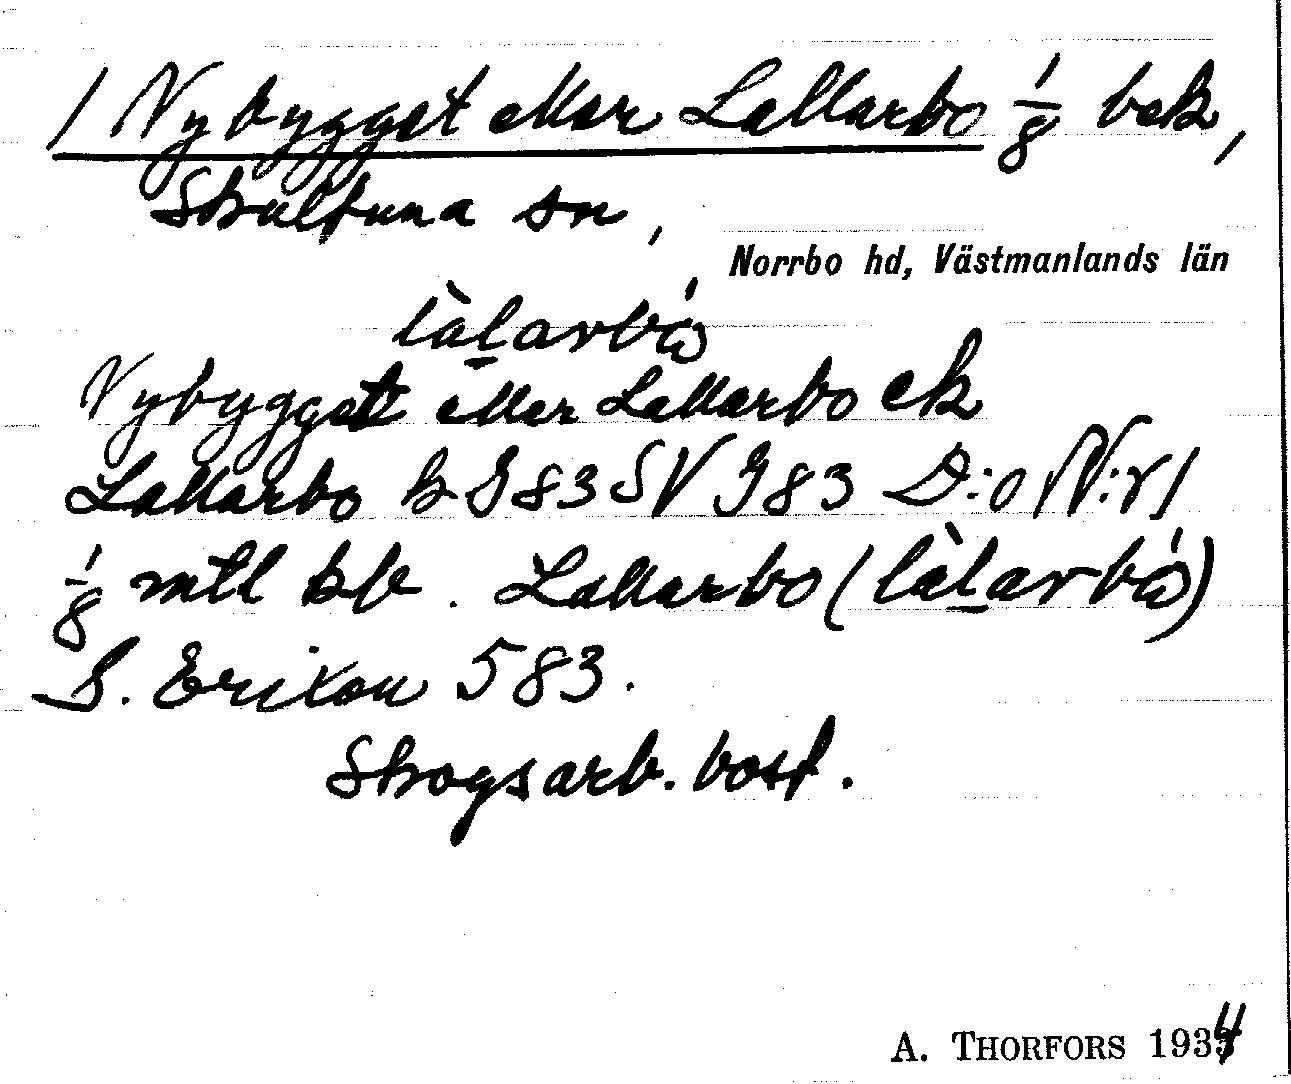 1 Nybygget eller Lallarbo 1/8 bek,
Skultuna sn,
Norrbo hd, Västmanlands län
làl̠arbó
Nybygget eller Lallarbo ek
Lallarbo k J 83 SV J 83 D:o N:r 1
1/8 mtl kb. Lallarbo (làl̠arbó)
S. Erixon 583.
Skogsarb. bost.
A. THORFORS 1934